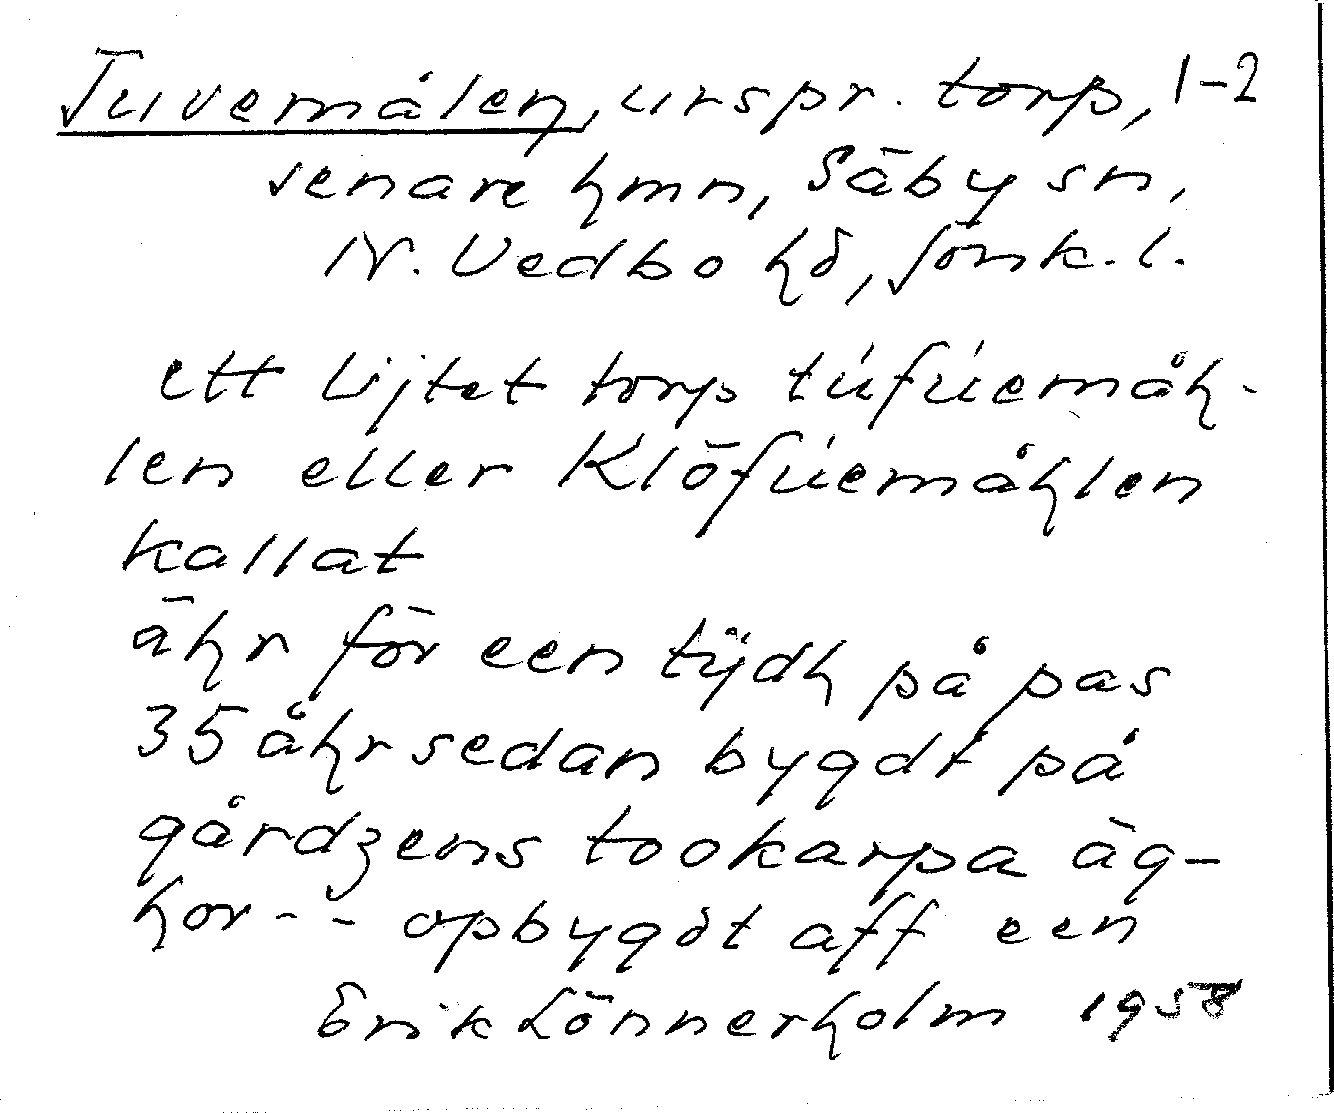 Tuvemålen, urspr. torp, 1-2
senare hmn, Säby sn,
N. Vedbo hd, Jönk. l.
ett lijtet torp tufuemåh-
len eller Klöfuemåhlen
kallat
ähr för een tÿdh på pas
35 åhr sedan bygdt på
gårdzens tookarpa äg-
hor - - opbygdt aff een
Erik Lönnerholm 1958